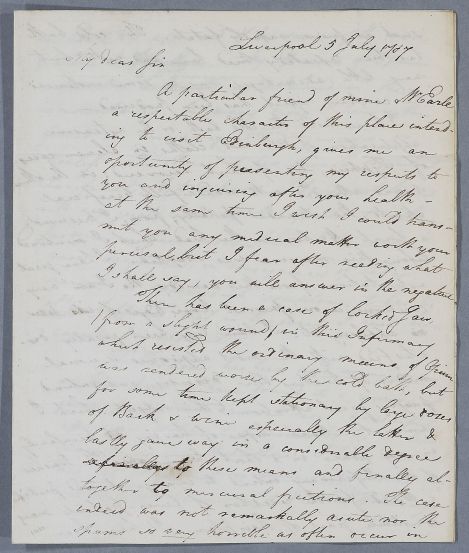 Liverpool 5 July 1787
My dear Sir
A particular friend of mine Mr Earle
a respectable character of this place intend-
ing to visit Edinburgh, gives me an
oportunity of presenting my respects to
you and inquiring after your health -
at the same time I wish I could trans-
mit you any medical matter worth your
perusal, but I fear after reading what
I shall say, you will answer in the negative
There has been a case of locked Jaw
(from a slight wound) in this Infirmary
which resisted the ordinary means of Opium
was rendered worse by the cold bath, but
for some time kept stationary by large doses
of Bark & wine especially the latter &
lastly gave way in a considerable degree
to these means and finally al-
together to mercurial frictions. The case
indeed was not remarkably acute nor the
spasms so very horrible as often occur in